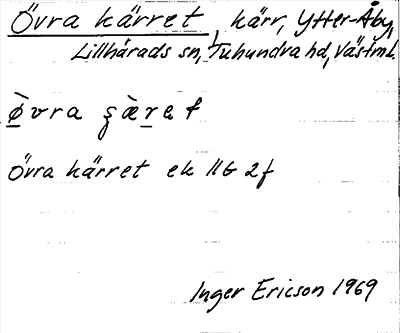 Övra kärret, kärr, Ytter-Åby,
Lillhärads sn, Tuhundra hd, Västml.
ø̀vra ʂæ̀ret
Övra kärret ek 11G 2f
Inger Ericson 1969